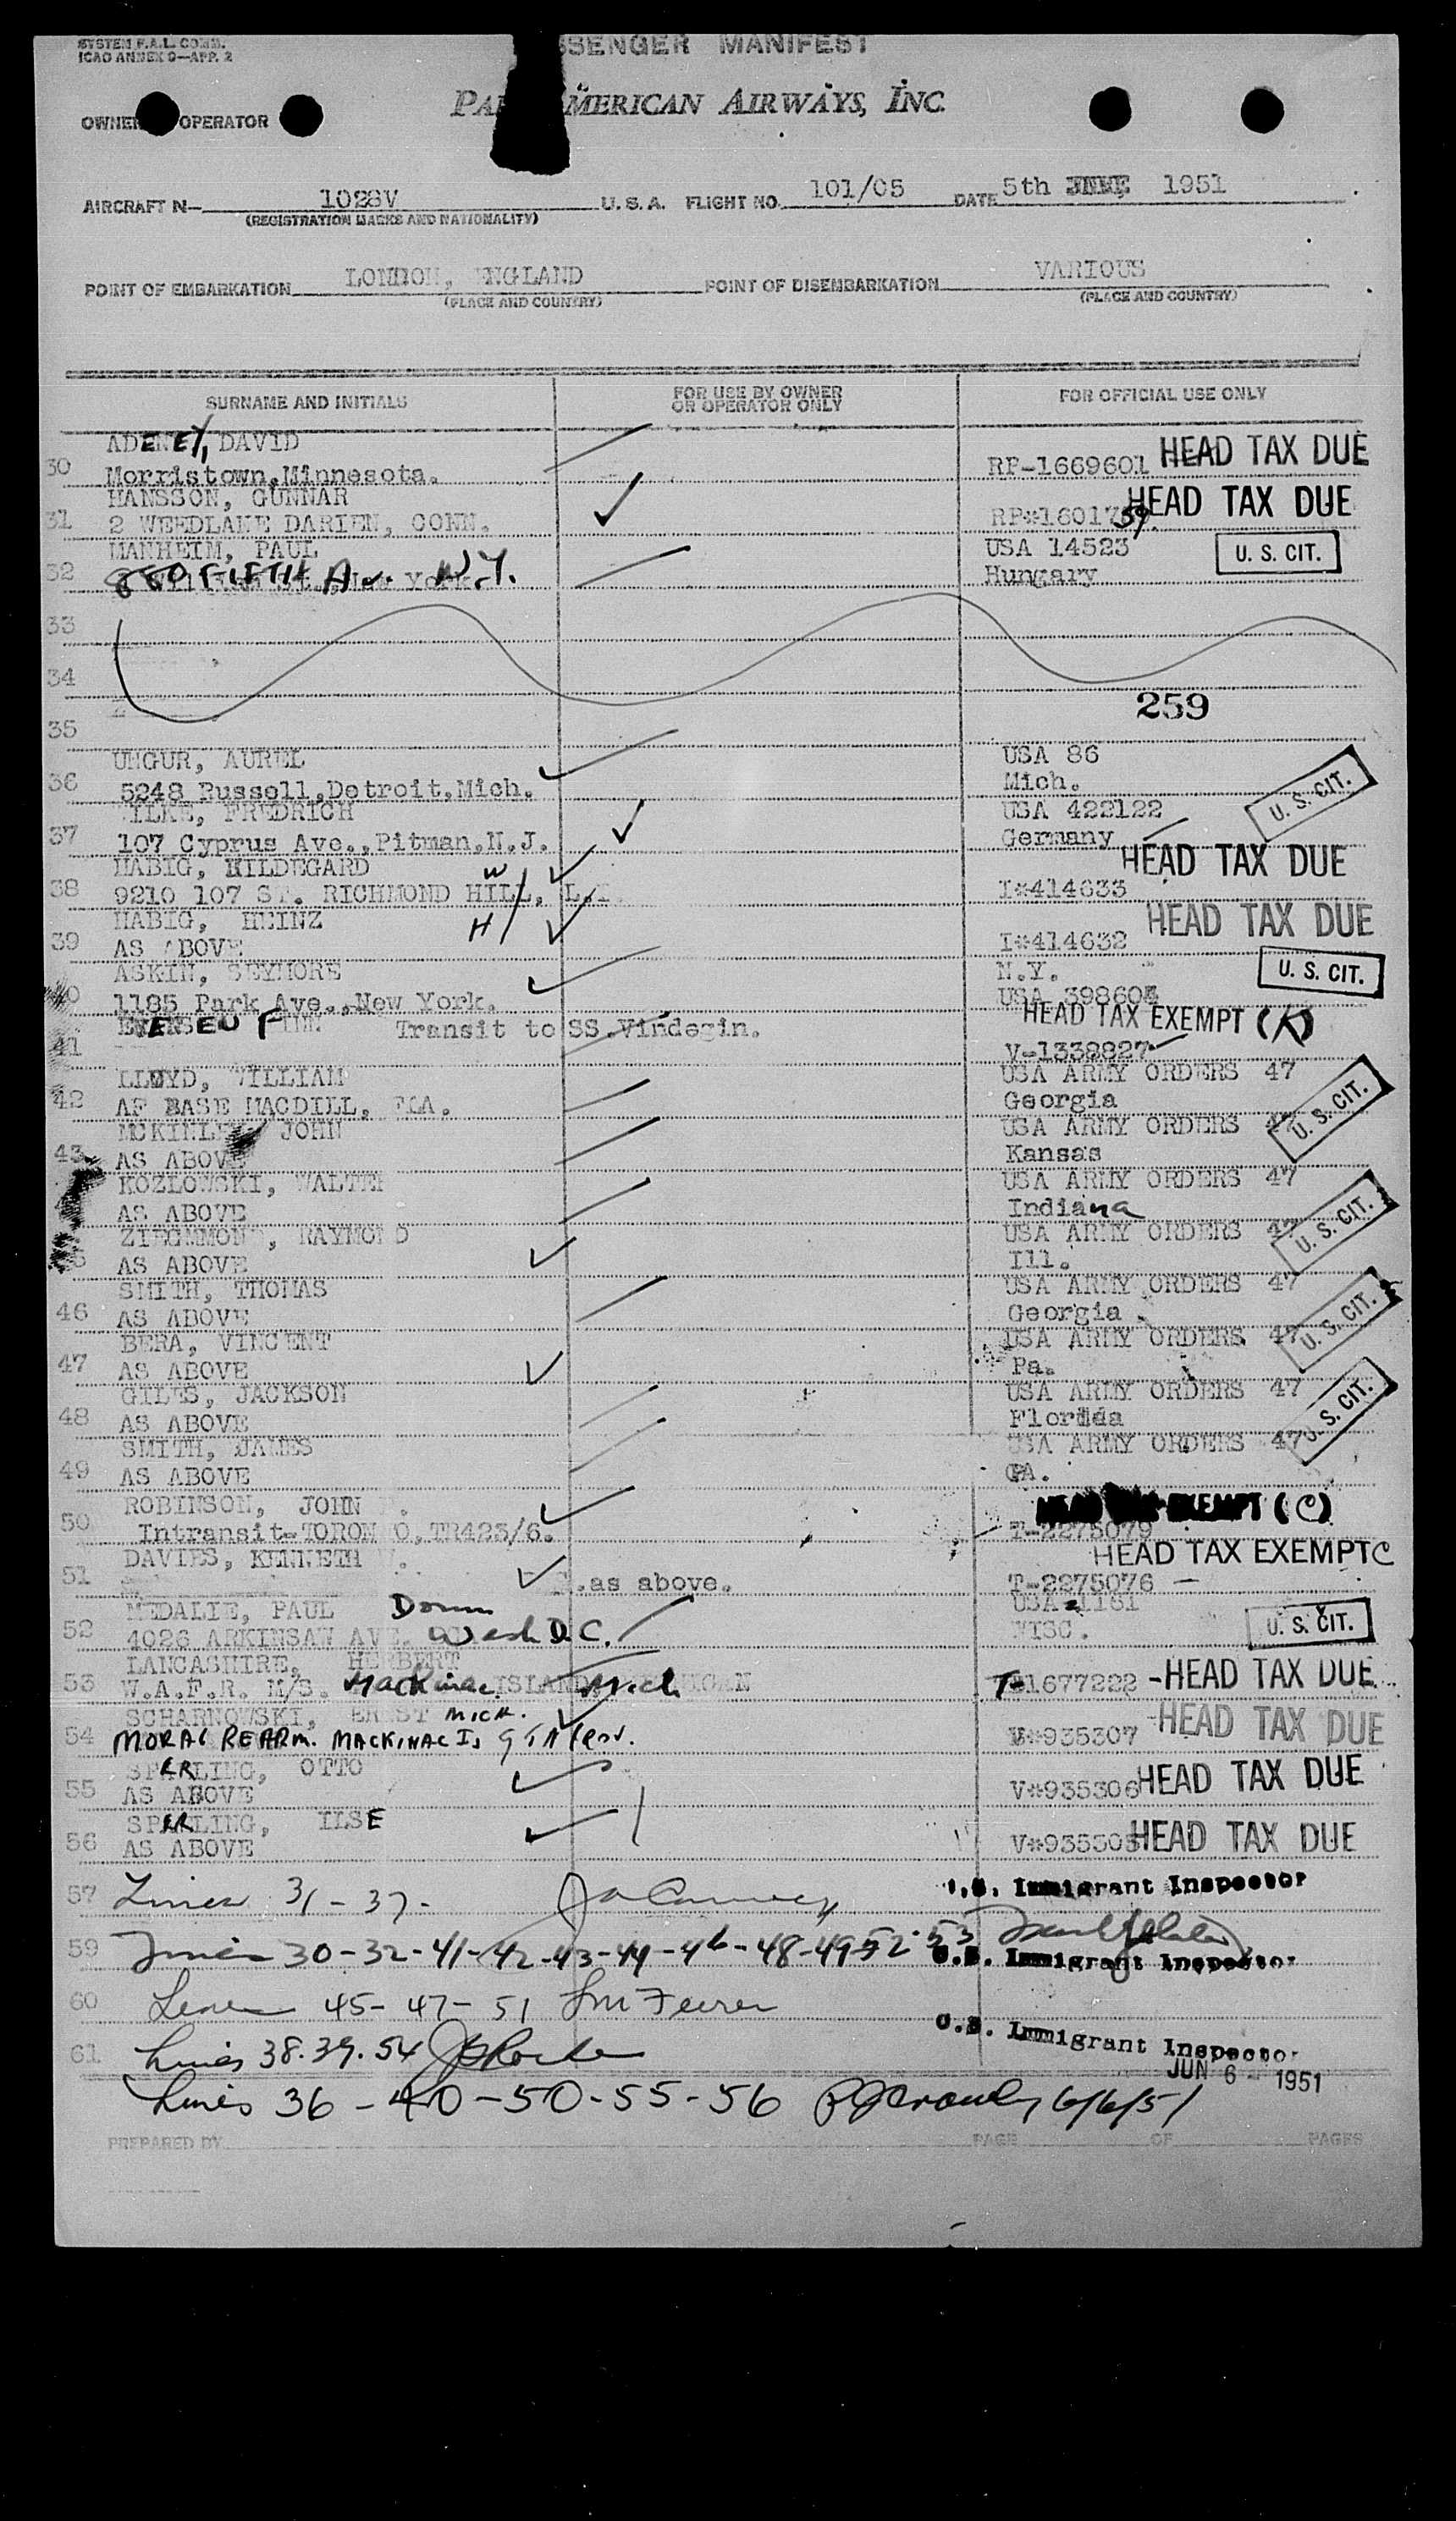 SYSTEM F.A.L. COMM.
ICAO ANNEX 9—APP. 2
SENGER MANIFEST
PAN AMERICAN AIRWAYS, INC.
OWNER OPERATOR
AIRCRAFT N— 1028V U.S.A. FLIGHT NO. 101/05 DATE 5th JUNE 1951
(REGISTRATION MARKS AND NATIONALITY)
POINT OF EMBARKATION LONDON, ENGLAND POINT OF DISEMBARKATION VARIOUS
(PLACE AND COUNTRY) (PLACE AND COUNTRY)
SURNAME AND INITIALS FOR USE BY OWNER OR OPERATOR ONLY FOR OFFICIAL USE ONLY
ADENEY, DAVID
30 Morristown, Minnesota. RP-1669601 HEAD TAX DUE
HANSSON, GUNNAR HEAD TAX DUE
31 2 WEEDLAKE DARIEN, CONN. RP#1601759
MANHEIM, PAUL USA 14523 U. S. CIT.
32 850 FIFTH Av. N.Y. Hungary
33
34
259
35
UNGUR, AUREL USA 86
36 5248 Russell, Detroit, Mich. Mich. U. S. CIT.
ILKE, FREDRICH USA 422122
37 107 Cyprus Ave., Pitman, N.J. Germany
HABIG, HILDEGARD W HEAD TAX DUE
38 9210 107 ST. RICHMOND HILL, L.I. I#414633
HABIG, HEINZ H HEAD TAX DUE
39 AS ABOVE I#414632
ASKIN, SEYMORE N.Y. U. S. CIT.
40 1185 Park Ave., New York. USA 398604
Transit to SS. Vindegin. HEAD TAX EXEMPT (K)
41 V-1338827
LLOYD, WILLIAM USA ARMY ORDERS 47
42 AF BASE MACDILL, FLA. Georgia U. S. CIT.
MCKINLEY JOHN USA ARMY ORDERS 47
43 AS ABOVE Kansas
KOZLOWSKI, WALTER USA ARMY ORDERS 47
AS ABOVE Indiana U. S. CIT.
ZIEGMMOND, RAYMOND USA ARMY ORDERS 47
AS ABOVE Ill.
SMITH, THOMAS USA ARMY ORDERS 47
46 AS ABOVE Georgia U. S. CIT.
BERA, VINCENT USA ARMY ORDERS 47
47 AS ABOVE Pa.
GILES, JACKSON USA ARMY ORDERS 47
48 AS ABOVE Florida U. S. CIT.
SMITH, JAMES USA ARMY ORDERS 47
49 AS ABOVE
ROBINSON, JOHN EXEMPT (C)
50 Intransit-TORONTO, TR423/6. T-2275079
DAVIES, KENNETH HEAD TAX EXEMPT C
51 as above. T-2275076
MEDALIE, PAUL USA 1181
52 4026 ARKINSAW AVE. Wash D.C. WISC. U. S. CIT.
LANCASHIRE, HERBERT
53 W.A.F.R. M/S. Mackinac ISLAND, Mich T-1677222 -HEAD TAX DUE
SCHARNOWSKI, ERNST MICH.
54 MORAL REARM. MACKINAC Is V#935307 -HEAD TAX DUE
SPERLING, OTTO
55 AS ABOVE V#935306 HEAD TAX DUE
SPERLING, ILSE
56 AS ABOVE V#935305 HEAD TAX DUE
57 Lines 31-37- U.S. Immigrant Inspector
59 Lines 30-32-41-42-43-44-46-48-49-52-53 U.S. Immigrant Inspector
60 Lines 45-47-51
U.S. Immigrant Inspector
61 Lines 38.39.54
JUN 6 1951
Lines 36-40-50-55-56 6/6/51
PREPARED BY PAGE OF PAGES